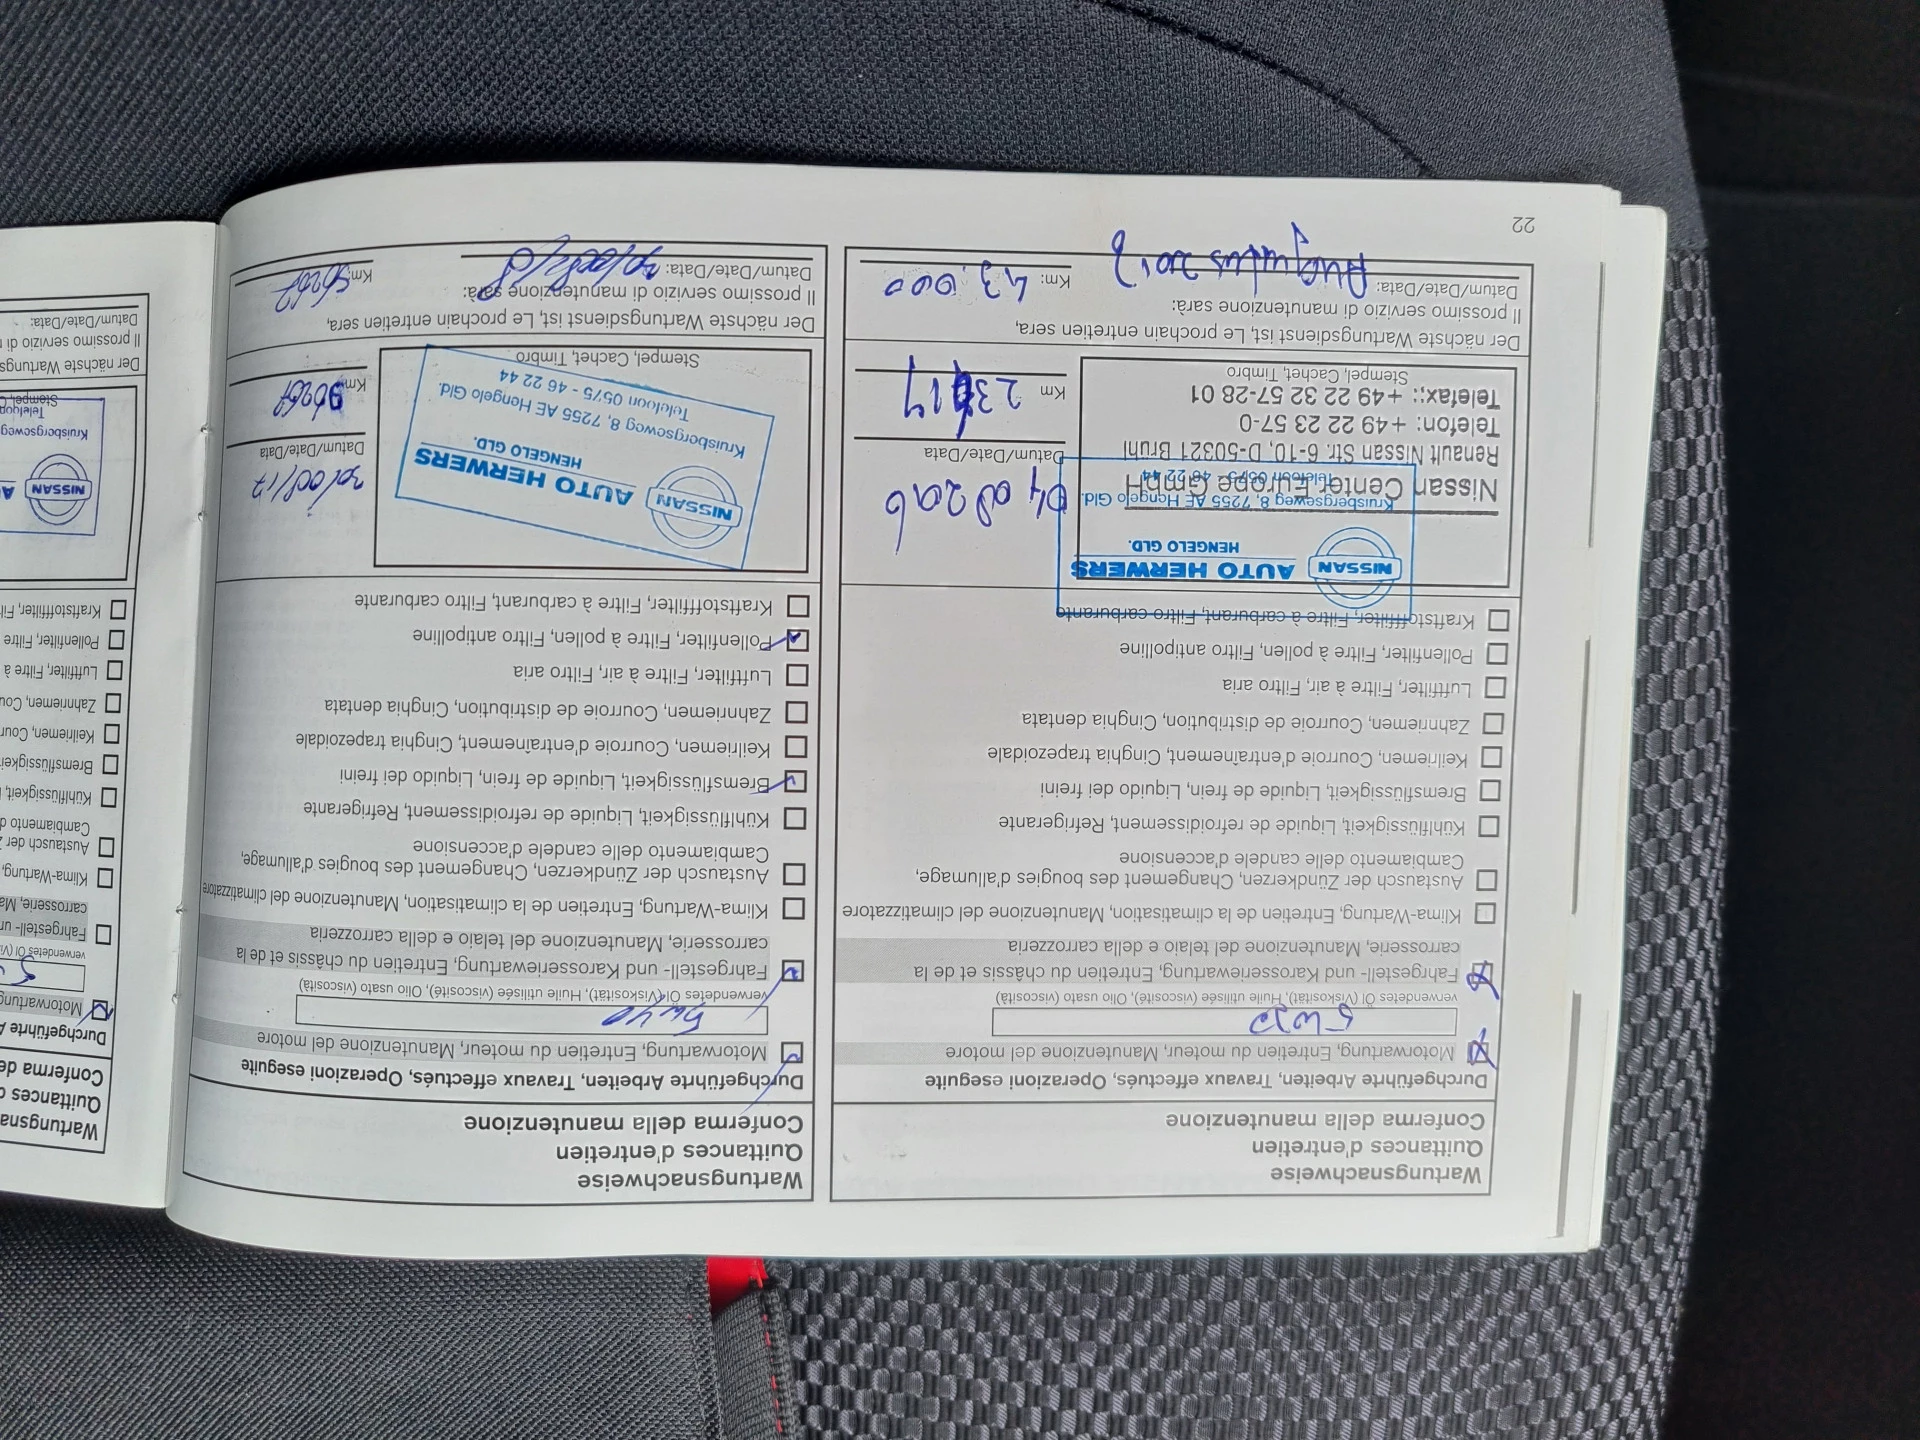 Wartungsnachweise
Quittances d'entretien
Conferma della manutenzione
Durchgeführte Arbeiten, Travaux effectués, Operazioni eseguite
Motorwartung, Entretien du moteur, Manutenzione del motore
5W30
verwendetes Öl (Viskosität), Huile utilisée (viscosité), Olio usato (viscosità)
Fahrgestell- und Karosseriewartung, Entretien du châssis et de la
carrosserie, Manutenzione del telaio e della carrozzeria
Klima-Wartung, Entretien de la climatisation, Manutenzione del climatizzatore
Austausch der Zündkerzen, Changement des bougies d'allumage,
Cambiamento delle candele d'accensione
Kühlflüssigkeit, Liquide de refroidissement, Refrigerante
Bremsflüssigkeit, Liquide de frein, Liquido dei freini
Keilriemen, Courroie d'entraînement, Cinghia trapezoidale
Zahnriemen, Courroie de distribution, Cinghia dentata
Luftfilter, Filtre à air, Filtro aria
Pollenfilter, Filtre à pollen, Filtro antipolline
Kraftstofffilter, Filtre à carburant, Filtro carburante
NISSAN AUTO HERWERS
HENGELO GLD.
Kruisbergseweg 8, 7255 AE Hengelo Gld.
Telefoon 0575 - 46 22 44
Nissan Center Europe GmbH
Renault Nissan Str. 6-10, D-50321 Brühl
Telefon: +49 22 23 57-0
Telefax:: +49 22 32 57-28 01
Stempel, Cachet, Timbro
Datum/Date/Data
Km
Der nächste Wartungsdienst ist, Le prochain entretien sera,
Il prossimo servizio di manutenzione sarà:
Datum/Date/Data: Augustus 2017
Km: 43.000
22
Wartungsnachweise
Quittances d'entretien
Conferma della manutenzione
Durchgeführte Arbeiten, Travaux effectués, Operazioni eseguite
Motorwartung, Entretien du moteur, Manutenzione del motore
5W40
verwendetes Öl (Viskosität), Huile utilisée (viscosité), Olio usato (viscosità)
Fahrgestell- und Karosseriewartung, Entretien du châssis et de la
carrosserie, Manutenzione del telaio e della carrozzeria
Klima-Wartung, Entretien de la climatisation, Manutenzione del climatizzatore
Austausch der Zündkerzen, Changement des bougies d'allumage,
Cambiamento delle candele d'accensione
Kühlflüssigkeit, Liquide de refroidissement, Refrigerante
Bremsflüssigkeit, Liquide de frein, Liquido dei freini
Keilriemen, Courroie d'entraînement, Cinghia trapezoidale
Zahnriemen, Courroie de distribution, Cinghia dentata
Luftfilter, Filtre à air, Filtro aria
Pollenfilter, Filtre à pollen, Filtro antipolline
Kraftstofffilter, Filtre à carburant, Filtro carburante
NISSAN AUTO HERWERS
HENGELO GLD.
Kruisbergseweg 8, 7255 AE Hengelo Gld.
Telefoon 0575 - 46 22 44
Stempel, Cachet, Timbro
30/08/17
Datum/Date/Data
Km
Der nächste Wartungsdienst ist, Le prochain entretien sera,
Il prossimo servizio di manutenzione sarà:
Datum/Date/Data: 30/08/18
Km: 56267
Wartungsna
Quittances d
Conferma de
Durchgeführte A
Motorwartung
verwendetes Öl (Vi
Fahrgestell- un
carrosserie, Ma
Klima-Wartung,
Austausch der Z
Cambiamento d
Kühlflüssigkeit,
Bremsflüssigkei
Keilriemen, Cour
Zahnriemen, Cou
Luftfilter, Filtre à
Pollenfilter, Filtre
Kraftstofffilter, Fil
NISSAN A
Kruisbergseweg
Telefoon
Stempel, C
Der nächste Wartungs
Il prossimo servizio di m
Datum/Date/Data: